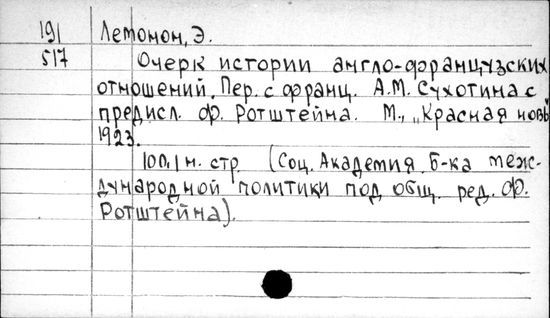 191 Лемонон, Э.
517 Очерк истории англо-французских
отношений. Пер. с франц. А.М. Сухотина с
предисл. Ф. Ротштейна. М., „Красная новь
1923.
100,1 н. стр. (Соц. Академия. Б-ка меж-
дународной политики под общ. ред. Ф.
Ротштейна).